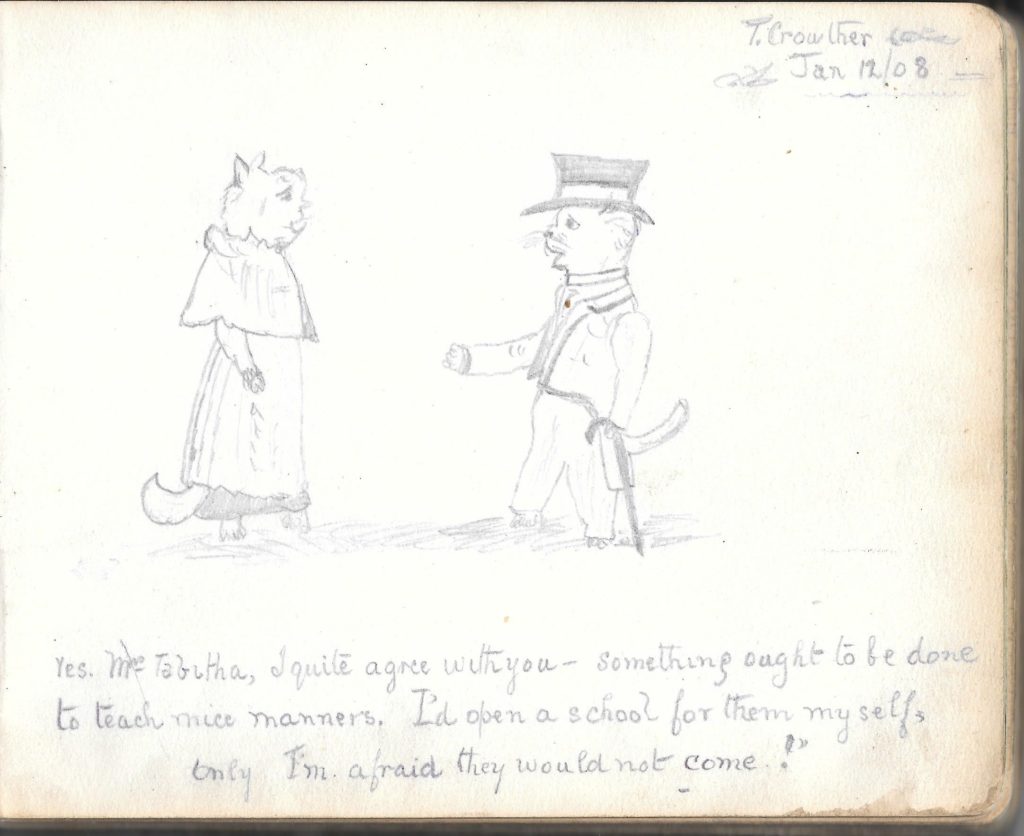 T. Crowther
Jan 12/08
Yes. Mrs Tabitha, I quite agree with you – something ought to be done
to teach mice manners. I'd open a school for them myself,
only I'm afraid they would not come."